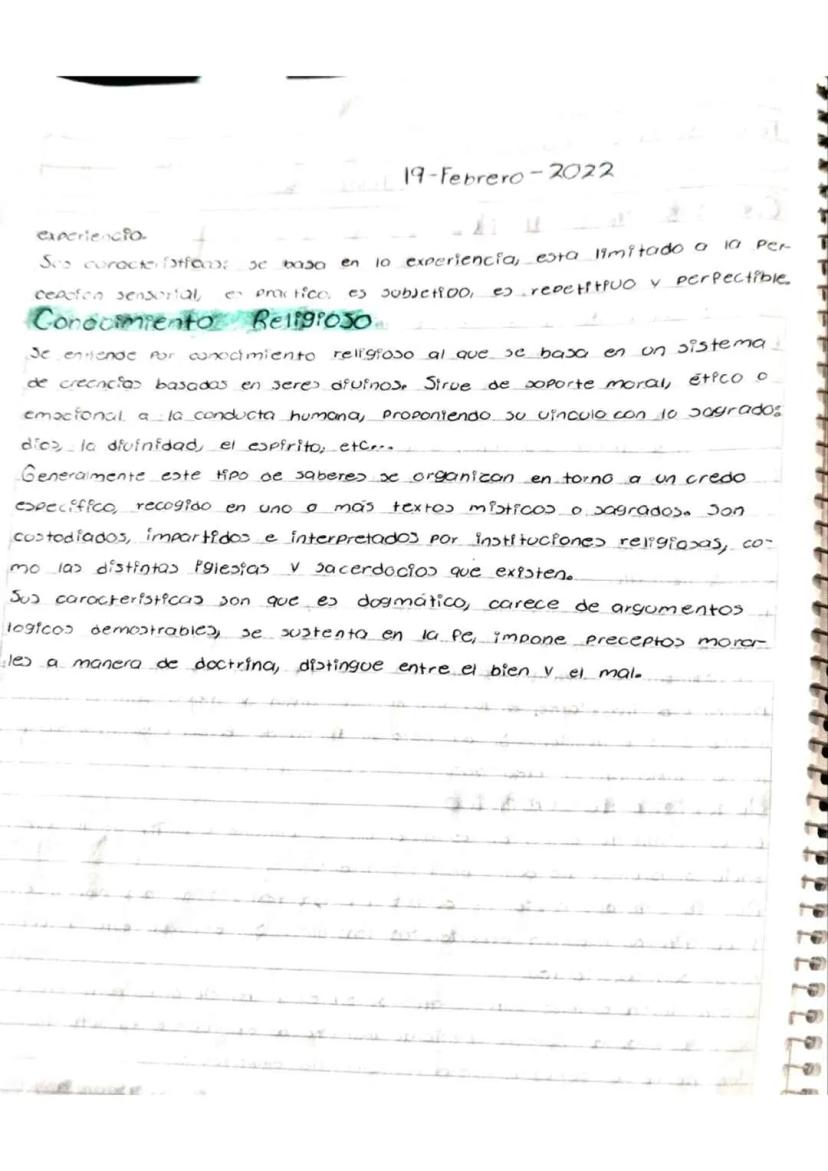 19-Febrero-2022
experiencia.
Sus características: se basa en la experiencia, esta limitado a la per-
cepción sensorial, es practico, es subjetivo, es repetitivo y perfectible.
Conocimiento Religioso
Se entiende por conocimiento religioso al que se basa en un sistema
de creencias basadas en seres divinos. Sirve de soporte moral, ético o
emocional a la conducta humana, proponiendo su vinculo con lo sagrado:
dios, la divinidad, el espíritu, etc...
Generalmente este tipo de saberes se organizan en torno a un credo
específico, recogido en uno o más textos místicos o sagrados. Son
custodiados, impartidos e interpretados por instituciones religiosas, co-
mo las distintas iglesias y sacerdocios que existen.
Sus características son que es dogmático, carece de argumentos
logicos demostrables, se sustenta en la fe, impone preceptos mora-
les a manera de doctrina, distingue entre el bien y el mal.